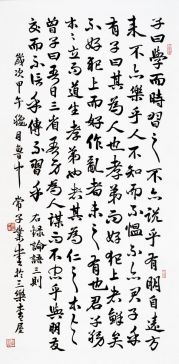 子曰學而時習之不亦說乎有朋自遠方
來不亦樂乎人不知而不慍不亦君子乎
有子曰其為人也孝弟而好犯上者鮮矣
不好犯上而好作亂者未之有也君子務
本本立而道生孝弟也者其為仁之本與
曾子曰吾日三省吾身為人謀而不忠乎與朋友
交而不信乎傳不習乎 右錄論語三則
歲次甲午 月魯中 常子業書於三樂書屋